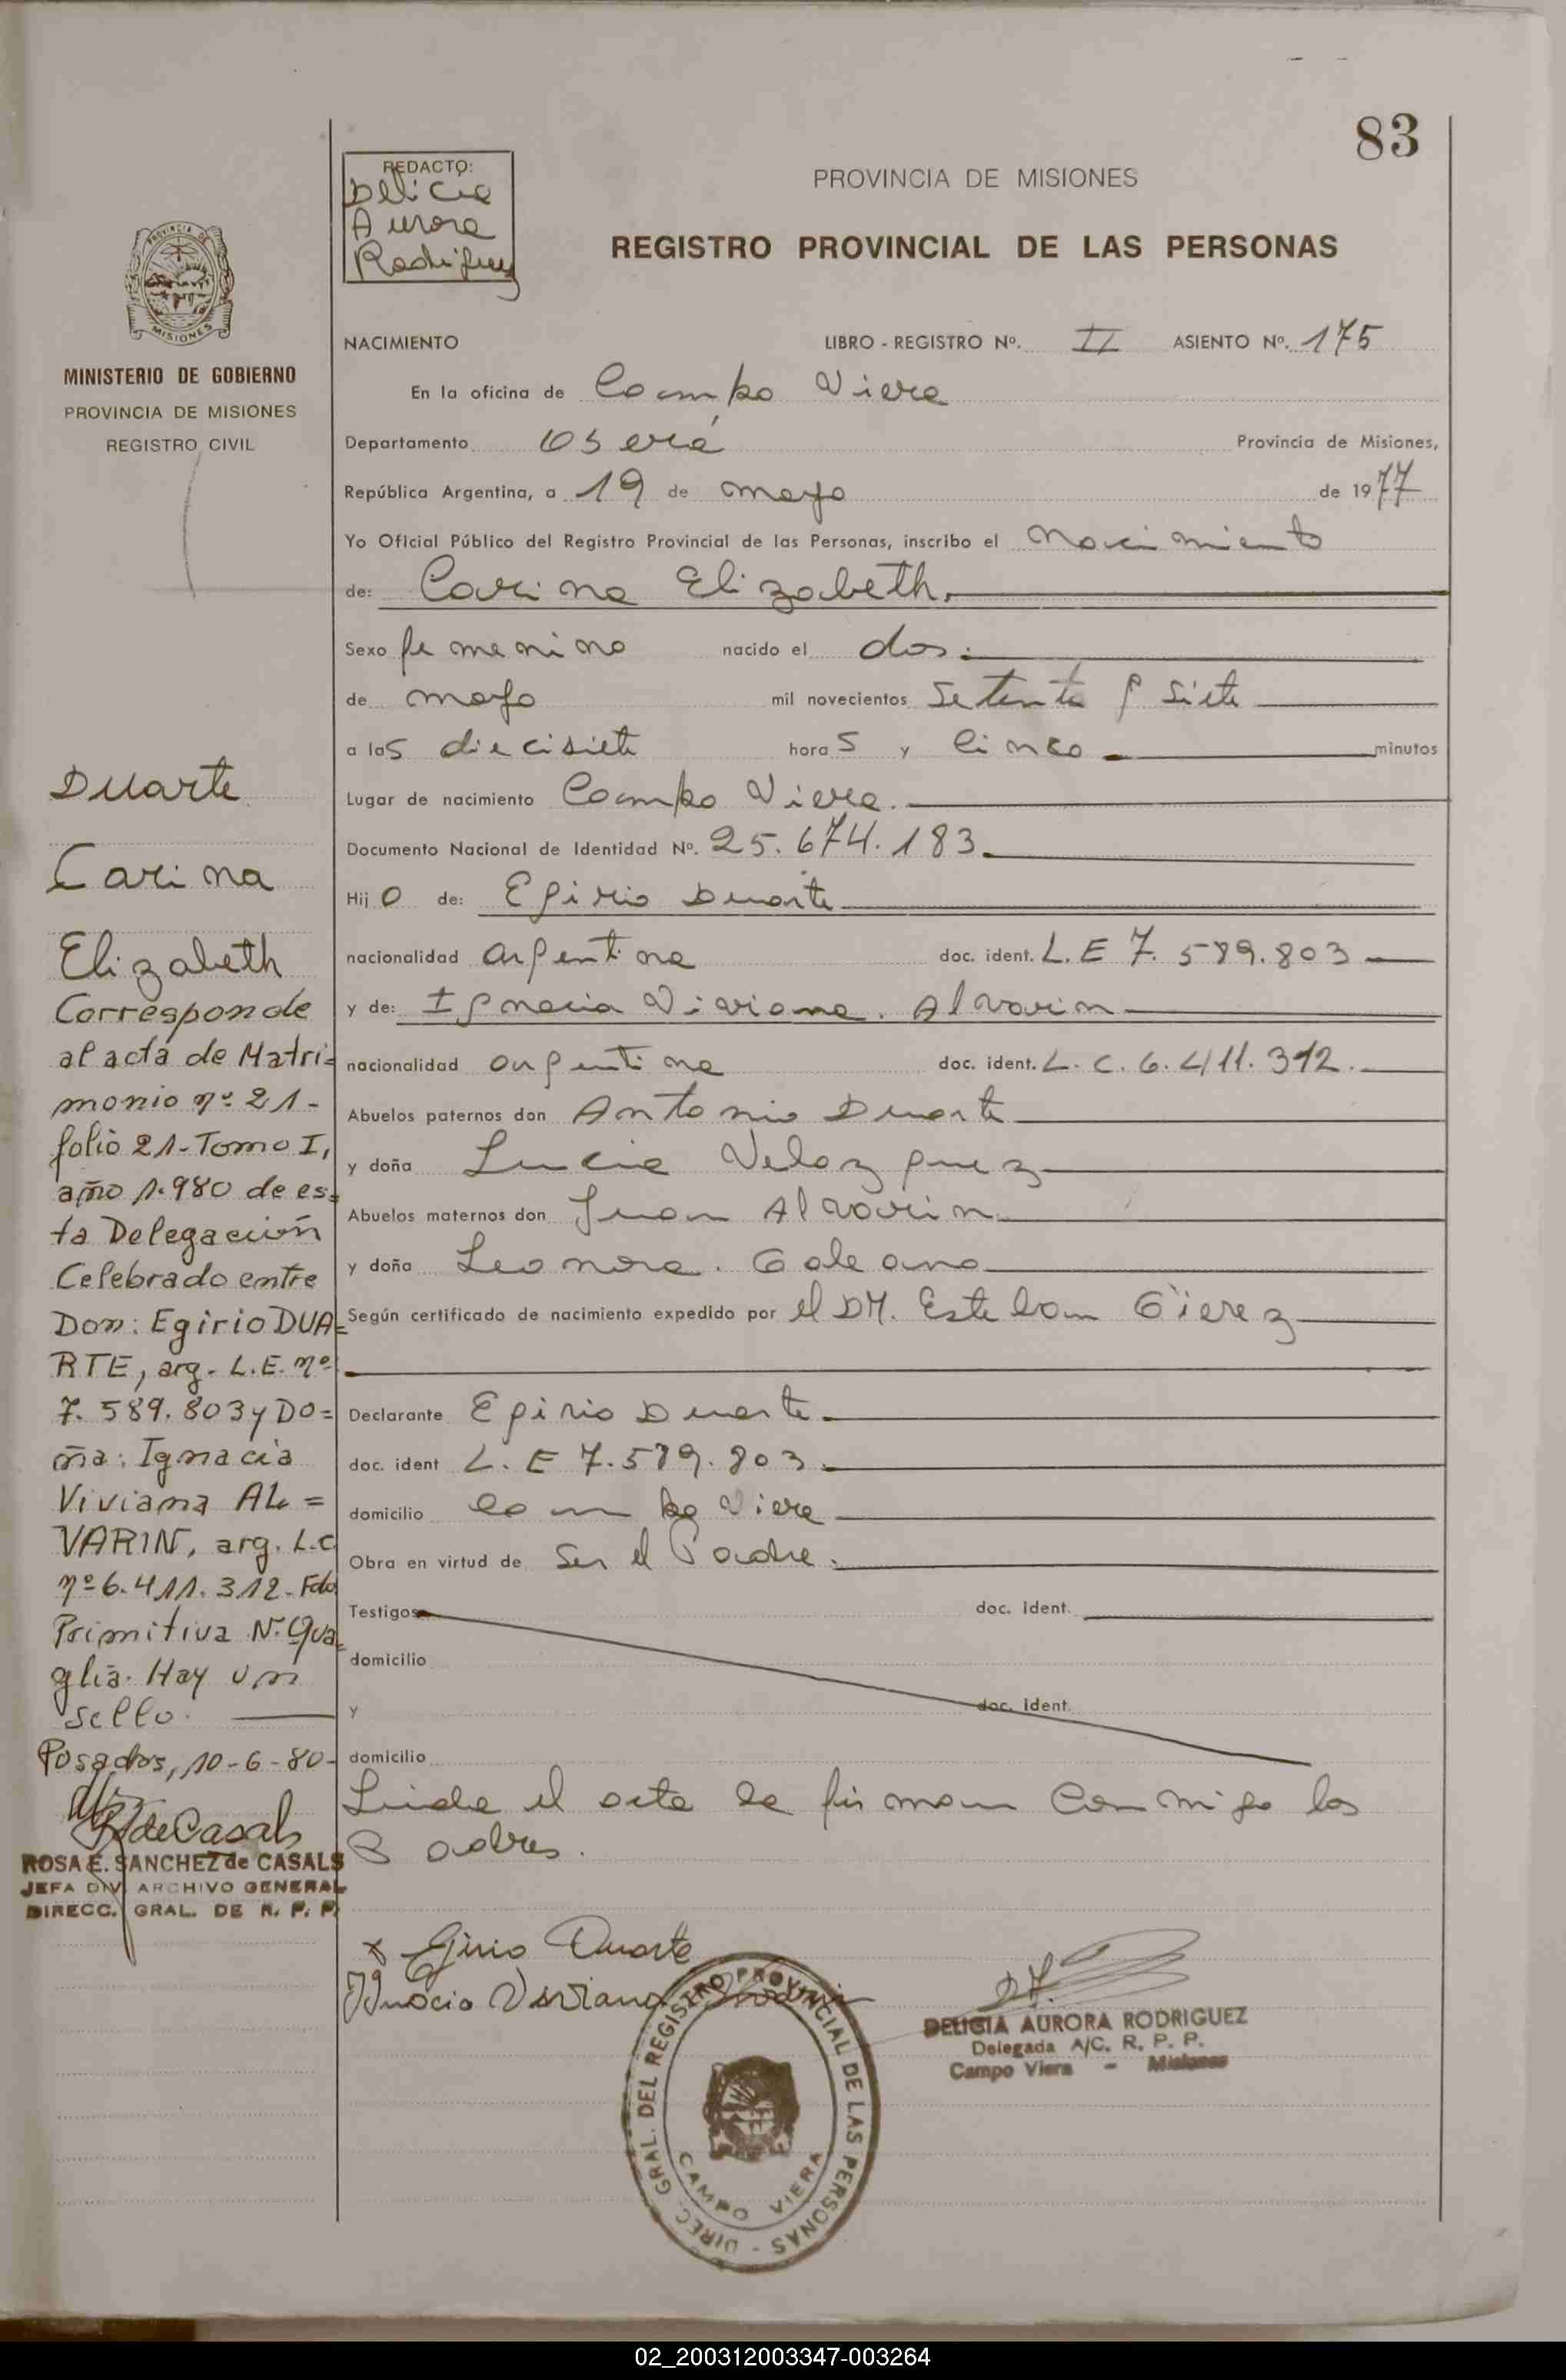 83
REDACTO:
Delicia
Aurora
Rodriguez
PROVINCIA DE MISIONES
REGISTRO PROVINCIAL DE LAS PERSONAS
PROVINCIA DE
MISIONES
MINISTERIO DE GOBIERNO
PROVINCIA DE MISIONES
REGISTRO CIVIL
NACIMIENTO LIBRO - REGISTRO Nº. II ASIENTO Nº. 175
En la oficina de Campo Viera
Departamento Oberá Provincia de Misiones,
República Argentina, a 19 de mayo de 1977
Yo Oficial Público del Registro Provincial de las Personas, inscribo el Nacimiento
de: Carina Elizabeth.
Sexo femenino nacido el dos.
de mayo mil novecientos setenta y siete
a las diecisiete horas y cinco minutos
Lugar de nacimiento Campo Viera.
Documento Nacional de Identidad Nº. 25.674.183
Hijo de: Egirio Duarte
nacionalidad argentina doc. ident. L.E 7.589.803
y de: Ignacia Viviana. Alvarin
nacionalidad argentina doc. ident. L.C. 6.411.312.
Abuelos paternos don Antonio Duarte
y doña Lucia Velazquez
Abuelos maternos don Juan Alvarin
y doña Leonora. Galeano
Según certificado de nacimiento expedido por el DM. Esteban
Declarante Egirio Duarte
doc. ident L.E 7.589.803
domicilio Campo Viera
Obra en virtud de Ser el Padre.
Testigos doc. ident.
domicilio
y doc. ident.
domicilio
Leida el acta la firman conmigo los
Padres.
Duarte
Carina
Elizabeth
Corresponde
al acta de Matri=
monio nº 21-
folio 21-Tomo I,
año 1.980 de es=
ta Delegación
Celebrado entre
Don: Egirio DUA=
RTE, arg. L.E. nº
7.589.803 y DO=
ña: Ignacia
Viviana AL=
VARIN, arg. L.C
nº 6.411.312-Fdo
Primitiva N. Qua=
glia. Hay un
sello.
Posadas, 10-6-80-
R S de Casals
ROSA E. SANCHEZ de CASALS
JEFA DIV. ARCHIVO GENERAL
DIRECC. GRAL. DE R. P. P.
x Egirio Duarte
Ignacia Viviana
DIREC. GRAL. DEL REGISTRO PROVINCIAL DE LAS PERSONAS -
CAMPO VIERA
DELICIA AURORA RODRIGUEZ
Delegada A/C. R. P. P.
Campo Viera - Misiones
02_200312003347-003264